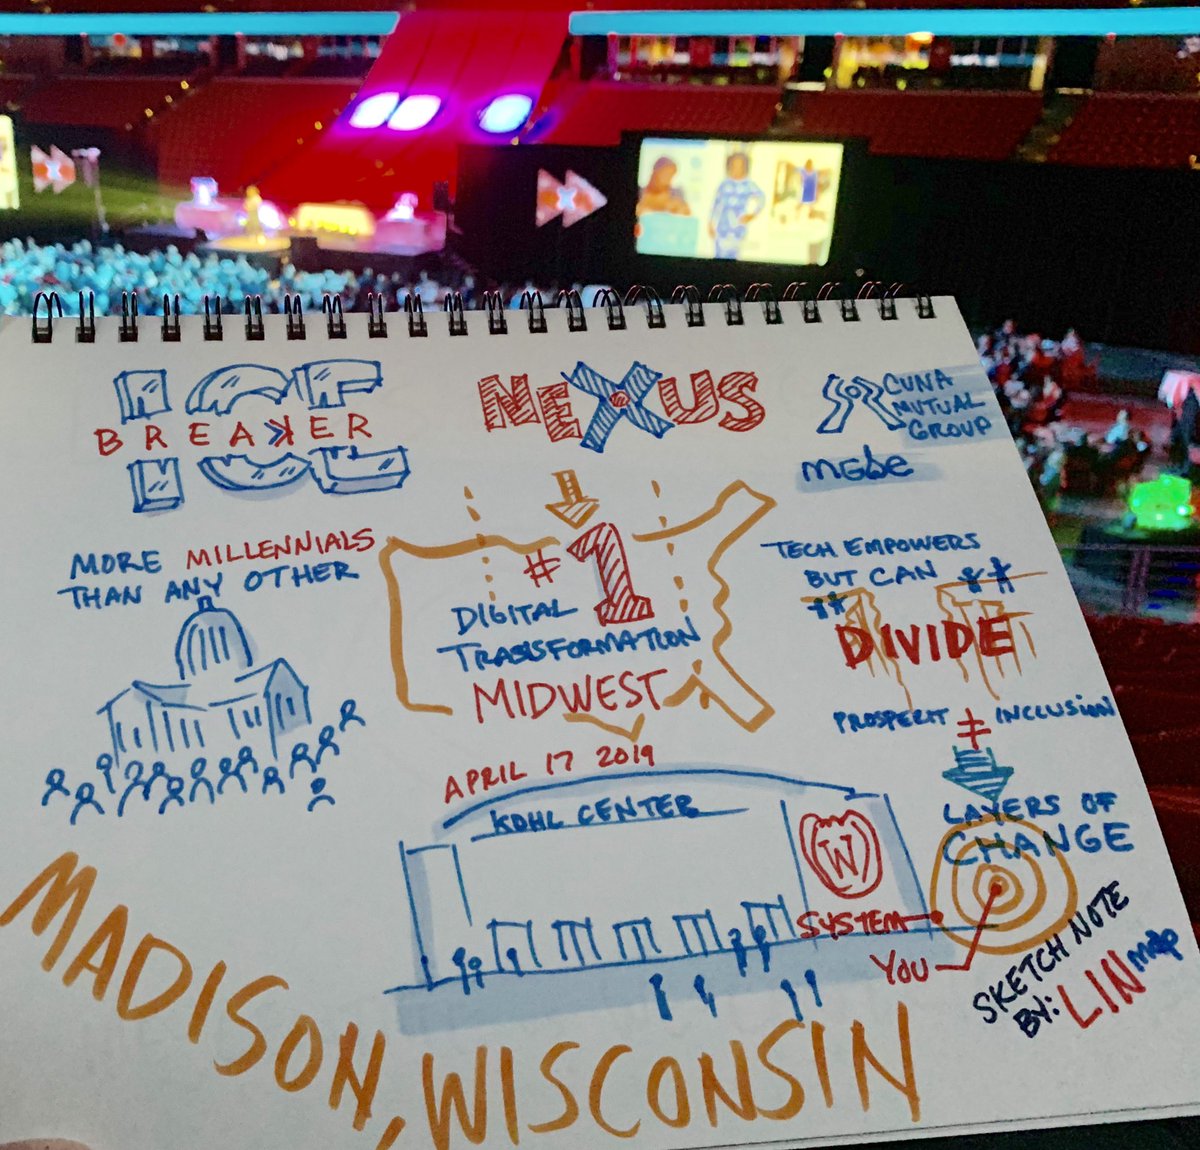 ICE
BREAKER
NEXUS
CUNA
MUTUAL
GROUP
MGbe
MORE MILLENNIALS
THAN ANY OTHER
#1
DIGITAL
TRANSFORMATION
MIDWEST
TECH EMPOWERS
BUT CAN
DIVIDE
PROSPERIT ≠ INCLUSION
LAYERS OF
CHANGE
SYSTEM
YOU
APRIL 17 2019
KOHL CENTER
W
SKETCH NOTE
BY: LIN
MADISON, WISCONSIN